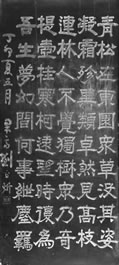 青松在東園衆草沒其姿
凝霜殄異類卓然見高枝
連林人不覺獨樹衆乃奇
提壺挂寒柯遠望時復為
吾生夢幻間何事紲塵羈
丁卯夏五月 劉